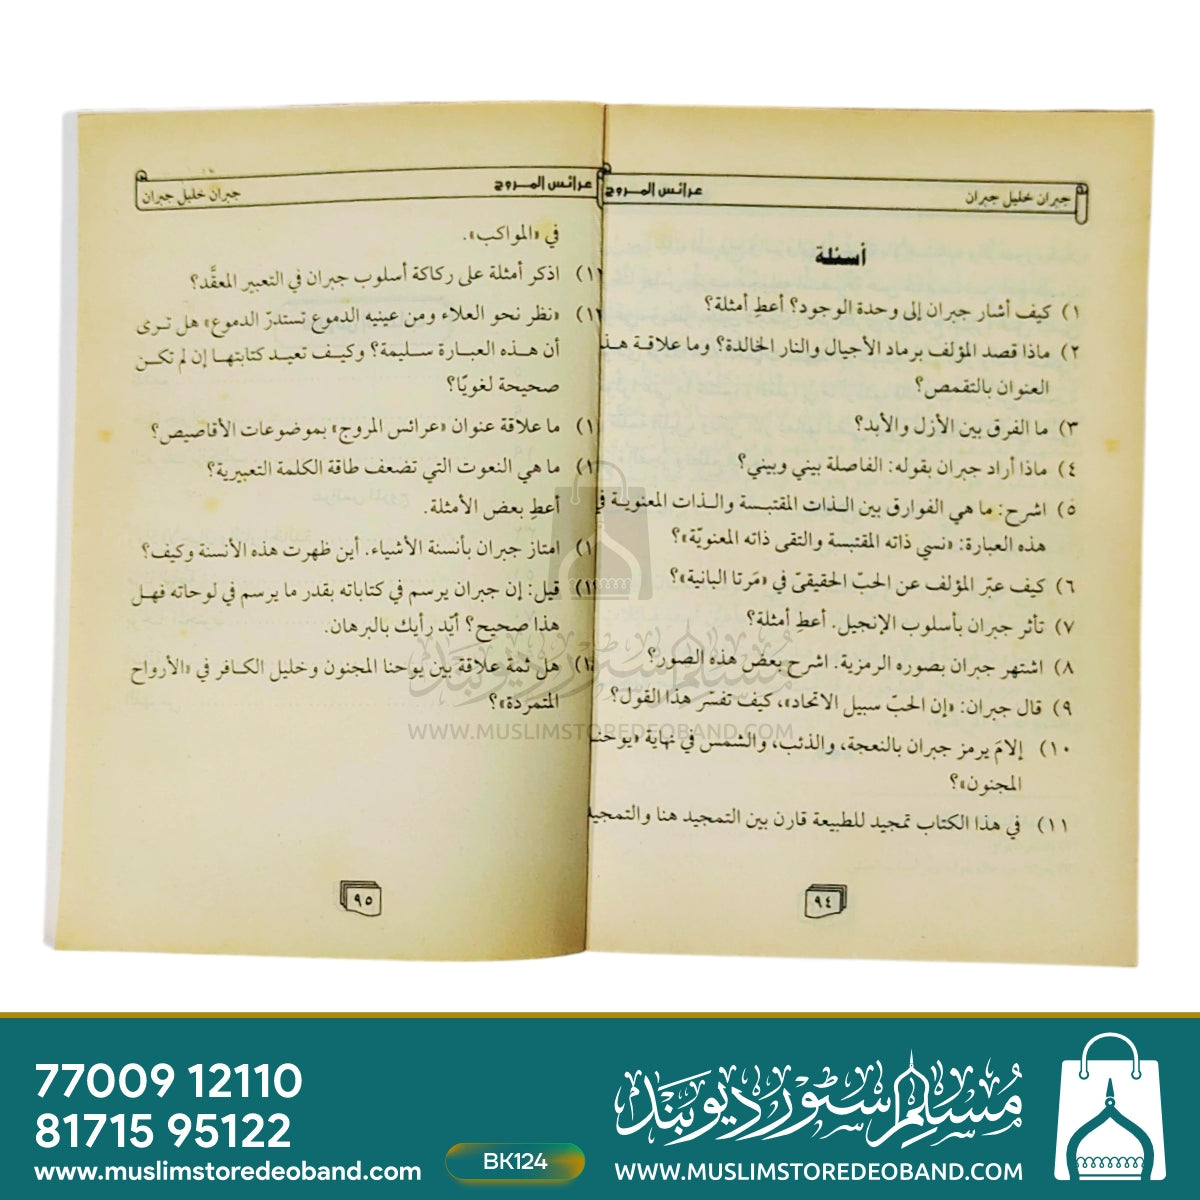 جبران خليل جبران
عرائس المروج
أسئلة
١) كيف أشار جبران إلى وحدة الوجود؟ أعطِ أمثلة؟
٢) ماذا قصد المؤلف برماد الأجيال والنار الخالدة؟ وما علاقة
العنوان بالتقمص؟
٣) ما الفرق بين الأزل والأبد؟
٤) ماذا أراد جبران بقوله: الفاصلة بيني وبيني؟
٥) اشرح: ما هي الفوارق بين الذات المقتبسة والذات المعنوية في
هذه العبارة: «نسي ذاته المقتبسة والتقى ذاته المعنويّة»؟
٦) كيف عبّر المؤلف عن الحبّ الحقيقيّ في «مَرتا البانية»؟
٧) تأثر جبران بأسلوب الإنجيل. أعطِ أمثلة؟
٨) اشتهر جبران بصوره الرمزية. اشرح بعض هذه الصور؟
٩) قال جبران: «إن الحبّ سبيل الاتحاد»، كيف تفسّر هذا القول؟
١٠) إلامَ يرمز جبران بالنعجة، والذئب، والشمس في نهاية «يوحنا
المجنون»؟
١١) في هذا الكتاب تمجيد للطبيعة قارن بين التمجيد هنا والتمجيد
٩٤
عرائس المروج
جبران خليل جبران
في «المواكب».
اذكر أمثلة على ركاكة أسلوب جبران في التعبير المعقَّد؟
«نظر نحو العلاء ومن عينيه الدموع تستدرّ الدموع» هل ترى
أن هذه العبارة سليمة؟ وكيف تعيد كتابتها إن لم تكن
صحيحة لغويًّا؟
ما علاقة عنوان «عرائس المروج» بموضوعات الأقاصيص؟
ما هي النعوت التي تضعف طاقة الكلمة التعبيرية؟
أعطِ بعض الأمثلة.
امتاز جبران بأنسنة الأشياء. أين ظهرت هذه الأنسنة وكيف؟
قيل: إن جبران يرسم في كتاباته بقدر ما يرسم في لوحاته فهل
هذا صحيح؟ أيّد رأيك بالبرهان.
هل ثمة علاقة بين يوحنا المجنون وخليل الكافر في «الأرواح
المتمردة»؟
٩٥
مسلم سٹور دیوبند
WWW.MUSLIMSTOREDEOBAND.COM
77009 12110
81715 95122
www.muslimstoredeoband.com
BK124
مسلم سٹور دیوبند
WWW.MUSLIMSTOREDEOBAND.COM